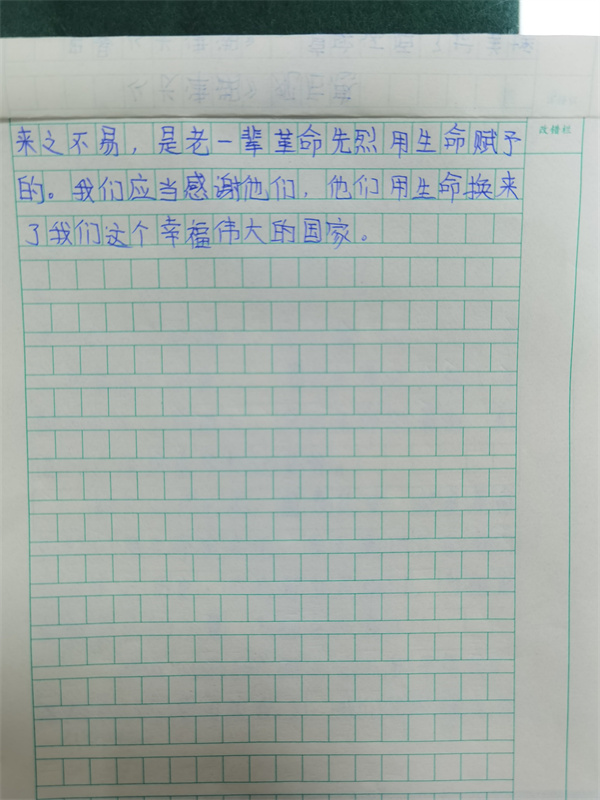 来之不易，是老一辈革命先烈用生命赋予
的。我们应当感谢他们，他们用生命换来
了我们这个幸福伟大的国家。
改错栏